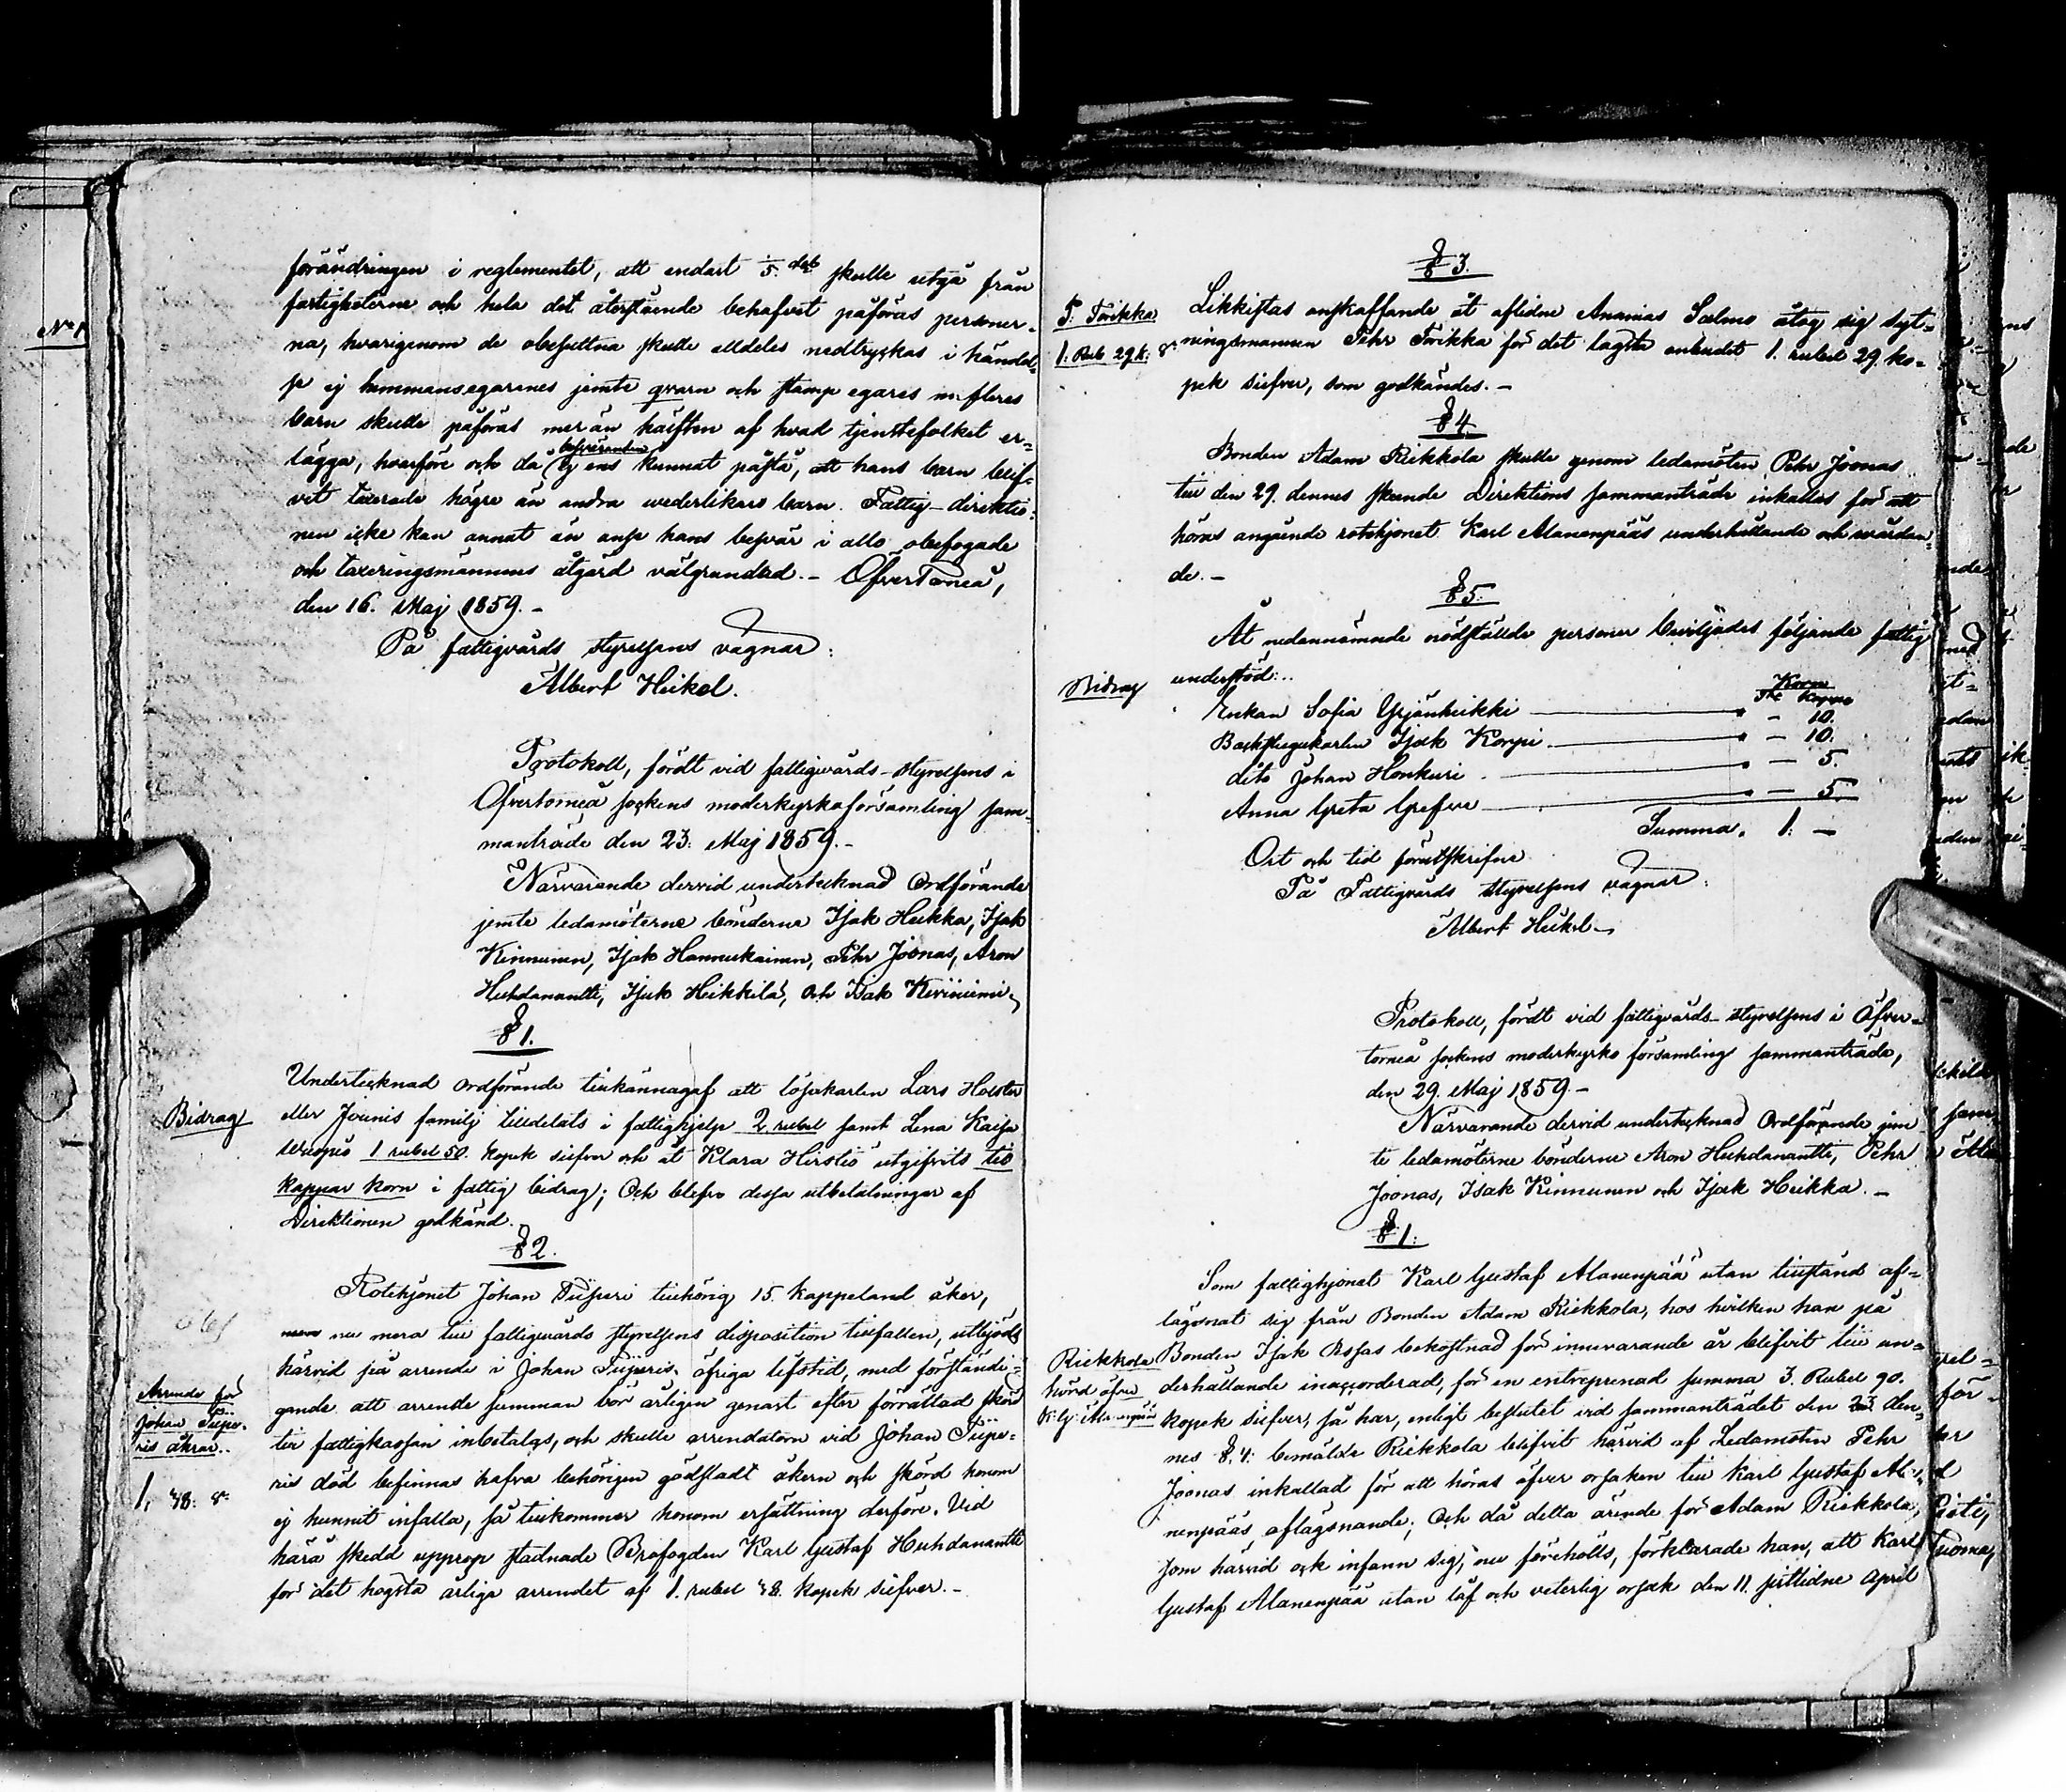 förändringen i reglementet, att endast 1/5 del skulle utgå från
fastigheterne och hela det återstående behofvet påföras personer-
na, hvarigenom de obesuttna skulle alldeles nedtryckas i händel-
se ej hemmansegarenes jemte qvarn och stamp egares m. fleres
barn skulle påföras mer än hälften af hvad tjenstefolket er-
lägga, hvarföre och då besväranden ej ens kunnat påstå, att hans barn blif-
vit taxerade högre än andra wederlikars barn. Fattig-direktio-
nen icke kan annat än anse hans besvär i allo obefogade
och taxeringsmännens åtgärd välgrundad.- ÖfverTorneå,
den 16. Maj 1859.-
På fattigvårds styrelsens vägnar:
Albert Heikel.
Protokoll, fördt vid fattigvårds-styrelsens i
Öfvertorneå sockens moderkyrkoförsamling sam-
manträde den 23. Maj 1859.-
Närvarande dervid undertecknad Ordförande
jemte ledamöterne bönderne Isak Heikka, Isak
Kinnunen, Isak Hannukainen, Pehr Joonas, Aron
Huhdanantti, Isak Heikkilä, och Isak Kiviniemi,
§ 1.
Bidrag
Undertecknad Ordförande tillkännagaf att lösakarlen Lars Holster
eller Jounis familj tilldelats i fattighjelp 2. rubel samt Lena Kajsa
1 rubel 50. kopek silfver och åt Klara Hirstiö utgifvits tio
kappar korn i fattig bidrag; Och blefvo dessa utbetalningar af
Direktionen godkänd.
§ 2.
Rotehjonet Johan Tiiperi tillhörig 15. kappeland åker,
nu mera till fattigvårds styrelsens disposition tillfallen, utbjöds
härvid på arrende i Johan Tiiperis öfriga lifstid, med förständi-
gande att arrende summan bör årligen genast efter förrättad skörd
Arrende för
Johan Tiipe-
ris åkrar..
till fattigkassan inbetalas, och skulle arrendatorn vid Johan Tiipe-
ris död befinnas hafva behörigen gödsladt åkern och skörd honom
1, 48. s.
ej hunnit infalla, så tillkommer honom ersättning derföre. Vid
härå skedd upprop stadnade Brofogden Karl Gustaf Huhdanantti
för det högsta årliga arrendet af 1. rubel 48. kopek silfver.-
§ 3.
P. Torikka
1. Rub. 29 k. s.
Likkistas anskaffande åt aflidne Ananias Salmo åtog sig syt-
ningsmannen Pehr Torikka för det lägsta anbudet 1. rubel 29. ko-
pek silfver, som godkändes.-
§ 4.
Bonden Adam Rickkola skulle genom ledamöten Pehr Joonas
till den 29. dennes skeende Direktions sammanträde inkallas för att
höras angående rotehjonet Karl Alanenpääs underhållande och vårdan-
de.-
§ 5.
Åt nedannämnde nödstälde personer beviljades följande fattig
Bidrag
understöd:..
Korn
Enkan Sofia Yrjänheikki - 10.
Backstugukarlen Isak Korpi - 10.
dito Johan Honkuri - 5.
Anna Greta Grefve - 5.
Summa. 1. -
Ort och tid förutskrifne
På Fattigvårds styrelsens vägnar:
Albert Heikel.
Protokoll, fördt vid fattigvårds-styrelsens i Öfver-
torneå sockens moderkyrko församling sammanträde,
den 29. Maj 1859.-
Närvarande dervid undertecknad Ordförande jem-
te ledamöterne bönderne Aron Huhdanantti, Pehr
Joonas, Isak Kinnunen och Isak Heikka.-
§ 1.
Som fattighjonet Karl Gustaf Alanenpää utan tillstånd af-
lägsnat sig från Bonden Adam Rickkola, hos hvilken han på
Rickkola
hörd öfver
K. G. Alanenpää
Bonden Isak Assas bekostnad för innevarande år blifvit till un-
derhållande inackorderad, för en entreprenad summa 3. Rubel 90.
kopek silfver, så har, enligt beslutet vid sammanträdet den 23 den-
nes § 4. bemälde Rickkola blifvit härvid af Ledamoten Pehr
Joonas inkallad för att höras öfver orsaken till Karl Gustaf Ala-
nenpääs aflägsnande; Och då detta ärende för Adam Rickkola,
som härvid ock infann sig, nu föreholls, förklarade han, att Karl
Gustaf Alanenpää utan låf och veterlig orsak den 11. sistlidne April